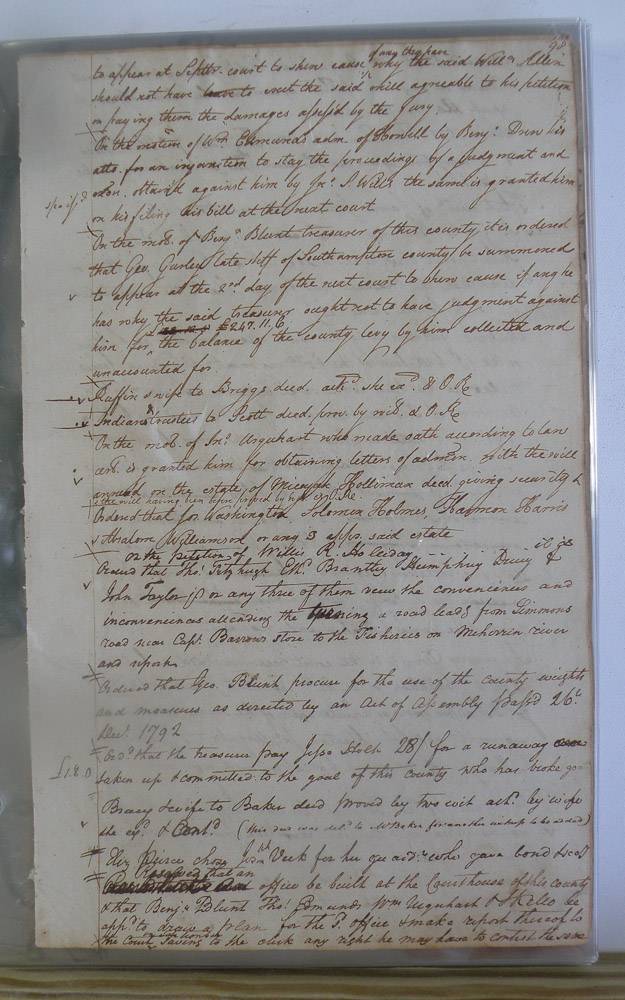 98
if any they have
to appear at Septr. court to shew cause why the said Willm Allen
should not have leave to erect the said mill agreeable to his petition
on paying them the damages assess'd by the Jury.
On the motion of Wm Edmunds adm. of Howell by Benj.
atto. for an injunction to stag the proceedings of a judgment and
against him by Jno. S. the same is granted him
on his filing his bill at the next court
On the mo. of Benj. Blunt treasurer of this county, it is ordered
that Geo. Gurley late shff of Southampton county be summoned
to appear at the 2nd day of the next court to shew cause if any he
has why the said treasurer ought not to have judgment against
£247.11.6
him for the balance of the county levy by him collected and
unaccounted for.
Ruffin & wife to Briggs deed ack. she ex. & O.R.
Indians trustees to Scott deed prov. by wit. & O.R.
On the mo. of Jno. Urquhart who made oath according to law
cert. is granted him for obtaining letters of admon. with the will
annexed on the estate of Micajah Holliman deed. giving security &
the will having been before proved by
Ordered that for Washington Solomon Holmes, Harmon Harris
Absalom Williamson or any 3 appr. said estate
On the petition of Willis R. Holiday
Ordered that Tho. Fitzhugh Brantley Humphrey Drury &
John Taylor or any three of them view the conveniences and
inconveniences attending the turning a road leadg from Simmons
road near Capt. Barrows store to the Fisheries on Meherrin river
and report
Ordered that Geo. Blunt procure for the use of the county weights
and measures as directed by an Act of Assembly pass'd 26
Decr. 1792
£1.8.0
Ord. that the treasurer pay Jesse Holt 28/ for a runaway
taken up & committed to the goal of this County who has broke
Bracy & wife to Baker deed proved by two wit ack. by wife
the ex. & Cont.
(this deed was del. to Mr Baker for another witness to be added)
Eliz. Pierce chose Vick for her guard. who gave bond &
Resolved that an
office be built at the Courthouse of this county
& that Benj. Blunt Tho. Edmunds Wm Urquhart & S. Kello be
app. to draw a plan for the office & make report thereof to
the Court Saving to the clerk any right he may have to contest the same